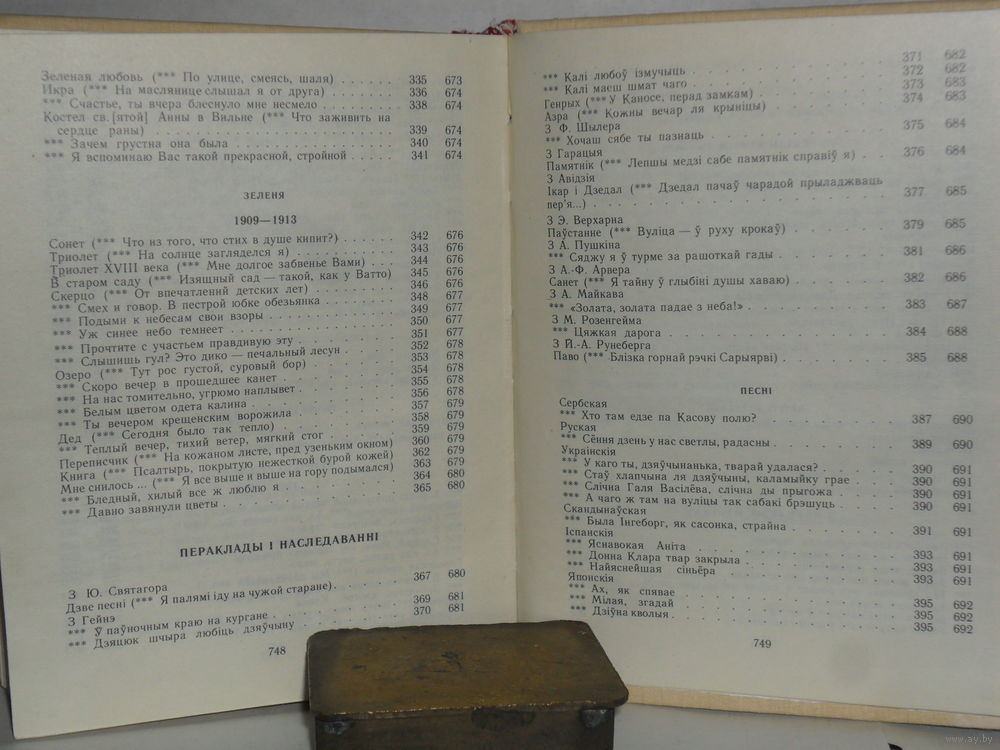 Зеленая любовь (*** По улице, смеясь, шаля) . . . . . . 335 673
Икра (*** На маслянице слышал я от друга) . . . . . . 336 674
*** Счастье, ты вчера блеснуло мне несмело . . . . . . 338 674
Костел св. [ятой] Анны в Вильне (*** Что заживить на
сердце раны) . . . . . . 339 674
*** Зачем грустна она была . . . . . . 340 674
*** Я вспоминаю Вас такой прекрасной, стройной . . . . 341 674
ЗЕЛЕНЯ
1909—1913
Сонет (*** Что из того, что стих в душе кипит?) . . . . 342 676
Триолет (*** На солнце загляделся я) . . . . . . 343 676
Триолет XVIII века (*** Мне долгое забвенье Вами) . . . 344 676
В старом саду (*** Изящный сад — такой, как у Ватто) 345 676
Скерцо (*** От впечатлений детских лет) . . . . . . 346 676
*** Смех и говор. В пестрой юбке обезьянка . . . . . . 348 677
*** Подыми к небесам свои взоры . . . . . . 349 677
*** Уж синее небо темнеет . . . . . . 350 677
*** Прочтите с участьем правдивую эту . . . . . . 351 677
*** Слышишь гул? Это дико — печальный лесун . . . . 352 678
Озеро (*** Тут рос густой, суровый бор) . . . . . . 353 678
*** Скоро вечер в прошедшее канет . . . . . . 354 678
*** На нас томительно, угрюмо наплывет . . . . . . 355 678
*** Белым цветом одета калина . . . . . . 356 678
*** Ты вечером крещенским ворожила . . . . . . 357 679
Дед (*** Сегодня было так тепло) . . . . . . 358 679
*** Теплый вечер, тихий ветер, мягкий стог . . . . . . 359 679
Переписчик (*** На кожаном листе, пред узеньким окном) 360 679
Книга (*** Псалтырь, покрытую нежесткой бурой кожей) 362 679
Мне снилось ... (*** Я все выше и выше на гору подымался) 363 679
*** Бледный, хилый все ж люблю я . . . . . . 364 680
*** Давно завянули цветы . . . . . . 365 680
ПЕРАКЛАДЫ І НАСЛЕДАВАННІ
З Ю. Святагора
Дзве песні (*** Я палямі іду на чужой старане). . . . . . 367 680
З Гейнэ
*** Ў паўночным краю на кургане . . . . . . 369 681
*** Дзяцюк шчыра любіць дзяўчыну . . . . . . 370 681
748
371 682
*** Калі любоў ізмучыць . . . . . . 372 682
*** Калі маеш шмат чаго . . . . . . 373 683
Генрых (*** У Каносе, перад замкам) . . . . . . 374 683
Азра (*** Кожны вечар ля крыніцы)
З Ф. Шылера
*** Хочаш сябе ты пазнаць . . . . . . 375 684
З Гарацыя
Памятнік (*** Лепшы медзі сабе памятнік справіў я) . . . 376 684
З Авідзія
Ікар і Дзедал (*** Дзедал пачаў чарадой прыладжваць
пер'я...) . . . . . . 377 685
З Э. Верхарна
Паўстанне (*** Вуліца — ў руху крокаў) . . . . . . 379 685
З А. Пушкіна
*** Сяджу я ў турме за рашоткай гады . . . . . . 381 686
З А.-Ф. Арвера
Санет (*** Я тайну ў глыбіні душы хаваю) . . . . . . 382 686
З А. Майкава
*** «Золата, золата падае з неба!» . . . . . . 383 687
З М. Розенгейма
*** Цяжкая дарога . . . . . . 384 688
З Й.-А. Рунеберга
Паво (*** Блізка горнай рэчкі Сарыярві) . . . . . . 385 688
ПЕСНІ
Сербская
*** Хто там едзе па Касову полю? . . . . . . 387 690
Руская
*** Сёння дзень у нас светлы, радасны . . . . . . 389 690
Украінскія
*** У каго ты, дзяўчынанька, тварай удалася? . . . . . . 390 691
*** Стаў хлапчына ля дзяўчыны, каламыйку грае . . . 390 691
*** Слічна Галя Васілёва, слічна ды прыгожа . . . . . . 390 691
*** А чаго ж там на вуліцы так сабакі брэшуць . . . . 390 691
Скандынаўская
*** Была Інгеборг, як сасонка, страйна . . . . . . 391 691
Іспанскія
*** Яснавокая Аніта . . . . . . 393 691
*** Донна Клара твар закрыла . . . . . . 393 691
*** Найяснейшая сіньёра . . . . . . 393 691
Японскія
*** Ах, як спявае . . . . . . 395 692
*** Мілая, згадай . . . . . . 395 692
*** Дзіўна кволыя . . . . . . 395 692
749
www.ay.by